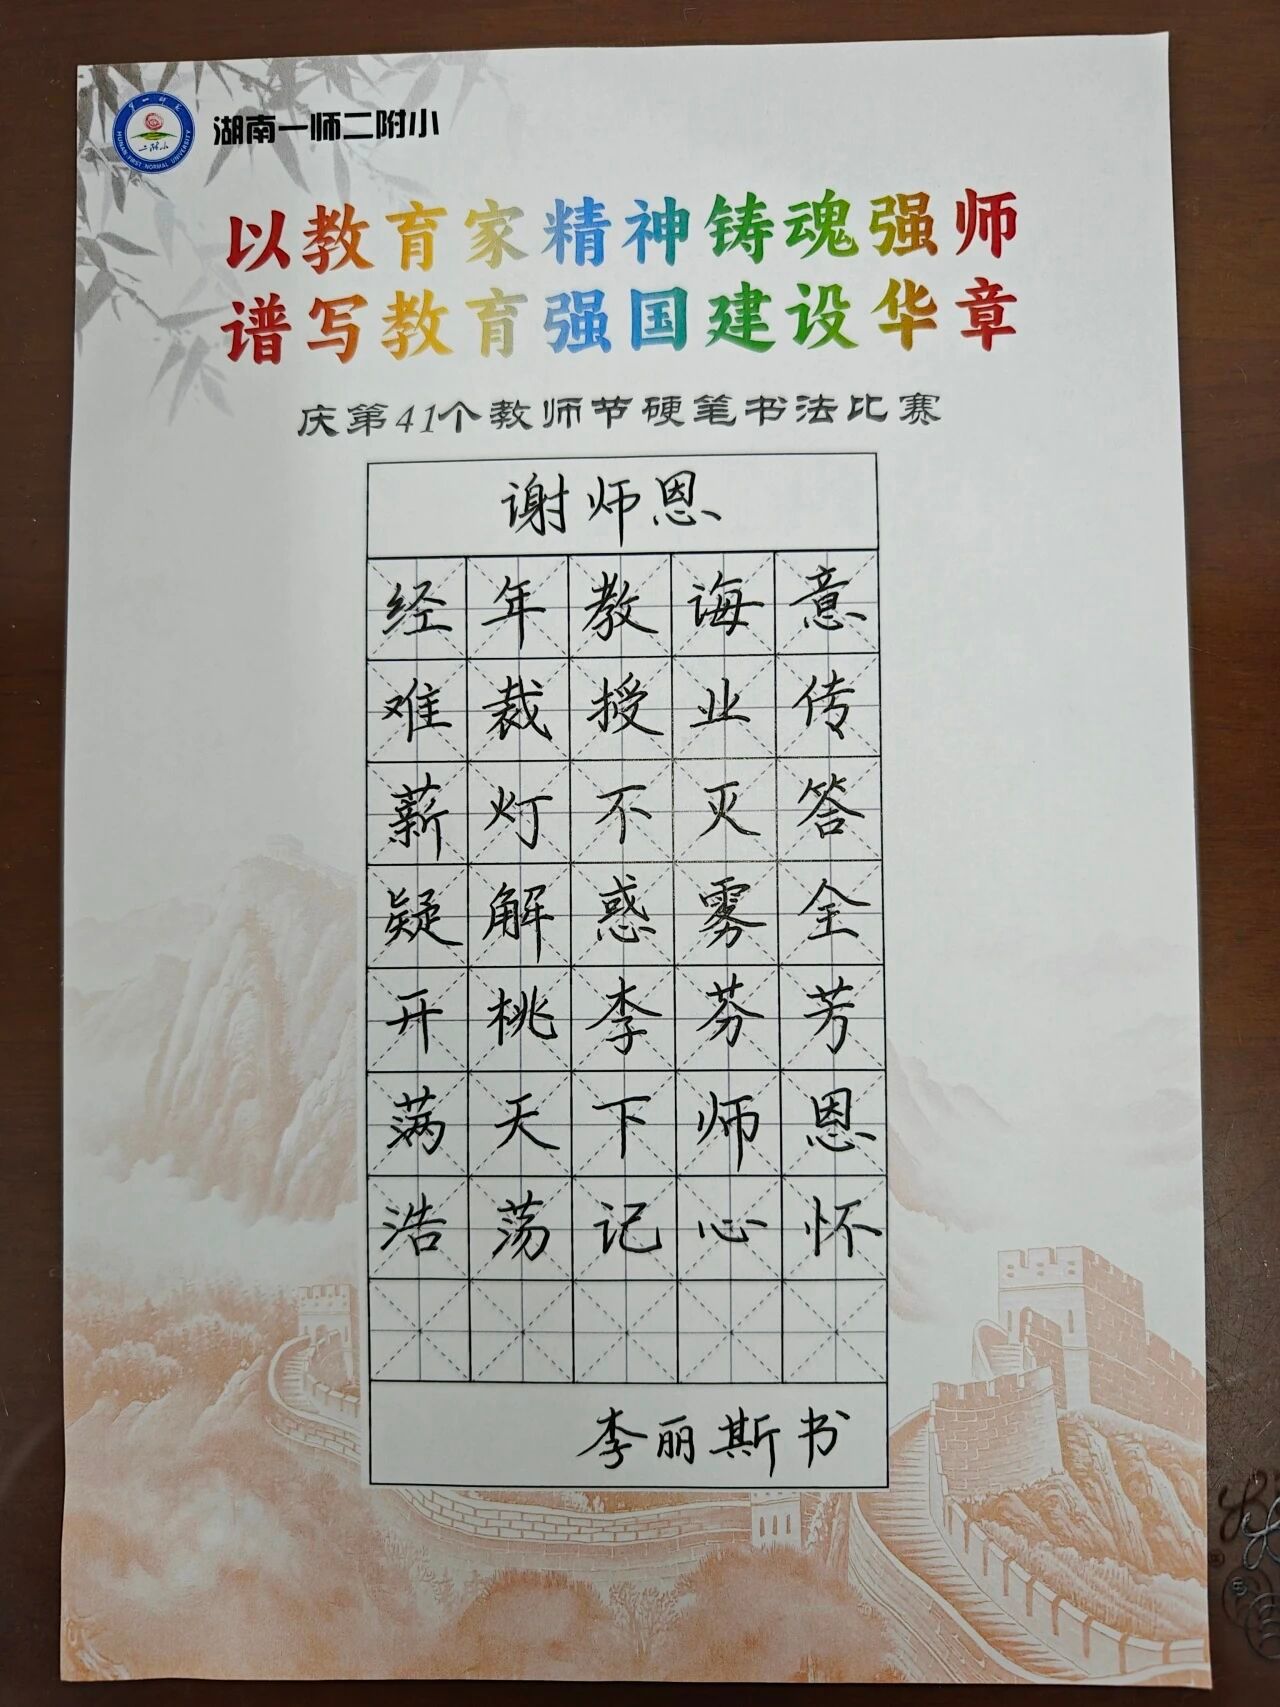 湖南一师二附小
二附小
HUNAN FIRST NORMAL UNIVERSITY
以教育家精神铸魂强师
谱写教育强国建设华章
庆第41个教师节硬笔书法比赛
谢师恩
经年教诲意
难裁授业传
薪灯不灭答
疑解惑雾全
开桃李芬芳
满天下师恩
浩荡记心怀
李丽斯书